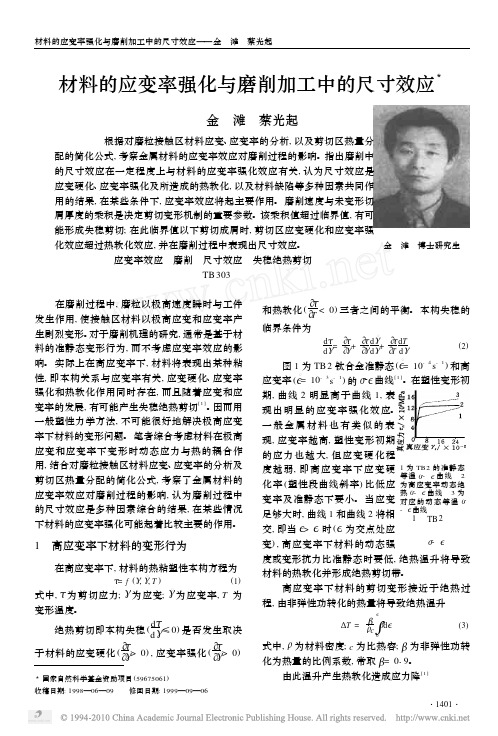 材料的应变率强化与磨削加工中的尺寸效应——金 滩 蔡光起
材料的应变率强化与磨削加工中的尺寸效应*
金 滩 蔡光起
根据对磨粒接触区材料应变、应变率的分析, 以及剪切区热量分
配的简化公式, 考察金属材料的应变率效应对磨削过程的影响。指出磨削中
的尺寸效应在一定程度上与材料的应变率强化效应有关, 认为尺寸效应是
应变硬化、应变率强化及所造成的热软化, 以及材料缺陷等多种因素共同作
用的结果, 在某些条件下, 应变率效应将起主要作用。磨削速度与未变形切
屑厚度的乘积是决定剪切变形机制的重要参数。该乘积值超过临界值, 有可
能形成失稳剪切; 在此临界值以下剪切成屑时, 剪切区应变硬化和应变率强
化效应超过热软化效应, 并在磨削过程中表现出尺寸效应。
金 滩 博士研究生
应变率效应 磨削 尺寸效应 失稳绝热剪切
TB 303
在磨削过程中, 磨粒以极高速度瞬时与工件
发生作用, 使接触区材料以极高应变和应变率产
生剧烈变形。对于磨削机理的研究, 通常是基于材
料的准静态变形行为, 而不考虑应变率效应的影
响。实际上在高应变率下, 材料将表现出某种粘
性, 即本构关系与应变率有关, 应变硬化、应变率
强化和热软化作用同时存在, 而且随着应变和应
变率的发展, 有可能产生失稳绝热剪切[1]。因而用
一般塑性力学方法, 不可能很好地解决极高应变
率下材料的变形问题。笔者综合考虑材料在极高
应变和应变率下变形时动态应力与热的耦合作
用, 结合对磨粒接触区材料应变、应变率的分析及
剪切区热量分配的简化公式, 考察了金属材料的
应变率效应对磨削过程的影响, 认为磨削过程中
的尺寸效应是多种因素综合的结果, 在某些情况
下材料的应变率强化可能起着比较主要的作用。
1 高应变率下材料的变形行为
在高应变率下, 材料的热粘塑性本构方程为
τ= f (γ, γ̇, T) (1)
式中, τ为剪切应力; γ为应变; γ̇为应变率, T 为
变形温度。
绝热剪切即本构失稳 (dτ/dγ≤0) 是否发生取决
于材料的应变硬化 (∂τ/∂γ> 0) , 应变率强化 (∂τ/∂γ̇> 0)
* 国家自然科学基金资助项目(59675061)
收稿日期: 1998—06—09 修回日期: 1999—09—06
和热软化 (∂τ/∂T< 0) 三者之间的平衡。本构失稳的
临界条件为
dτ/dγ= ∂τ/∂γ+ ∂τ/∂γ̇ dγ̇/dγ+ ∂τ/∂T dT/dγ (2)
图 1 为 TB 2 钛合金准静态(ε̇= 10⁻⁴s⁻¹) 和高
应变率 (ε̇= 10⁻³s⁻¹) 的 σ-ε曲线[1]。在塑性变形初
期, 曲线 2 明显高于曲线 1, 表
现出明显的应变率强化效应。
一般金属材料也有类似的表
现, 应变率越高, 塑性变形初期
的应力也越大, 但应变硬化程
度越弱, 即高应变率下应变硬
化率(塑性段曲线斜率) 比低应
变率及准静态下要小。当应变
足够大时, 曲线 1 和曲线 2 将相
交, 即当 ε> εi 时(εi 为交点处应
变) , 高应变率下材料的动态强
16
12
8
4
0 8 16 24
3
2
1
1 为 TB 2 的准静态
等温 σ- ε曲线 2
为高应变率动态绝
热 σ- ε曲线 3 为
对应的动态等温 σ
- ε曲线
1 TB 2
σ- ε
度或变形抗力比准静态时要低, 绝热温升将导致
材料的热软化并形成绝热剪切带。
高应变率下材料的剪切变形接近于绝热过
程, 由非弹性功转化的热量将导致绝热温升
ΔT = β/ρc ∫σdε (3)
式中, ρ 为材料密度; c 为比热容; β 为非弹性功转
化为热量的比例系数, 常取 β= 0. 9。
由此温升产生热软化造成应力降[1]
· 1401 ·
© 1994-2010 China Academic Journal Electronic Publishing House. All rights reserved. http://www.cnki.net